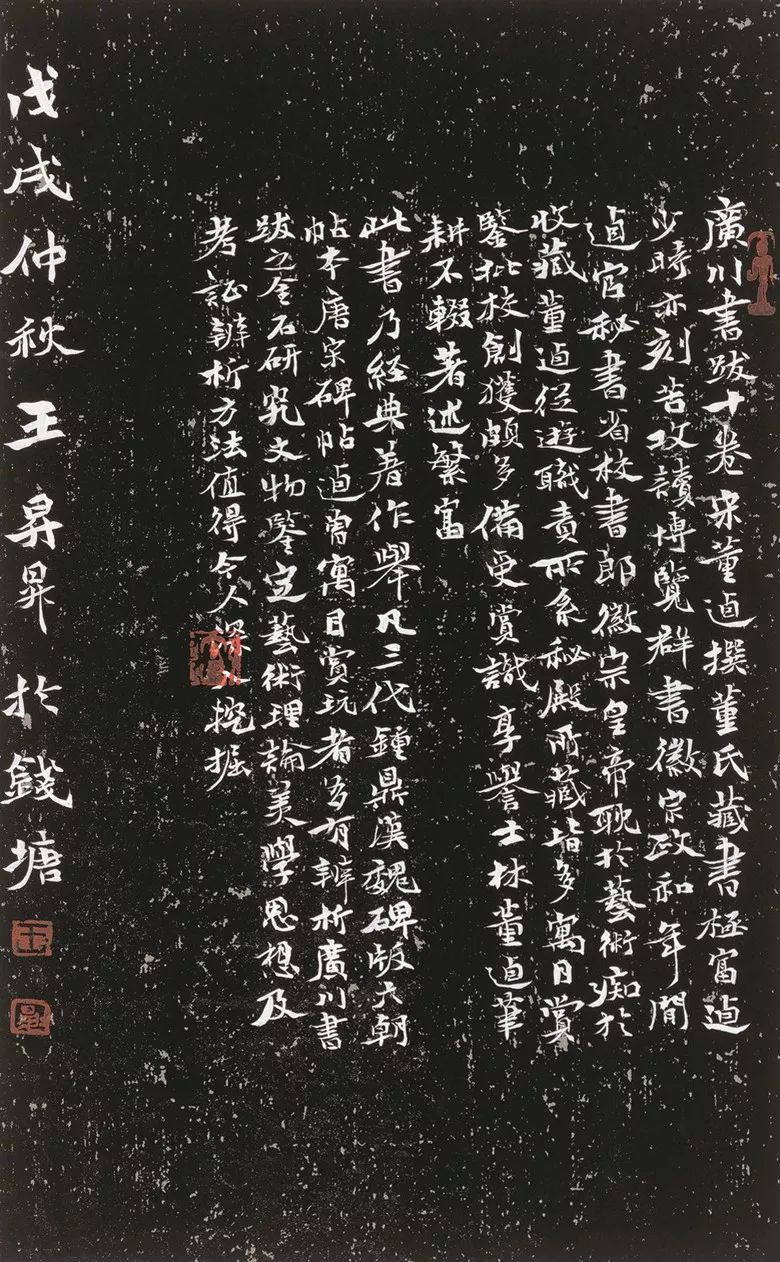 廣川書跋十卷宋董逌撰董氏藏書極富逌
少時亦刻苦攻讀博覽群書徽宗政和年間
逌官秘書省校書郎徽宗皇帝耽於藝術痴於
收藏董逌從遊職責所系秘殿所藏皆多寓目賞
鑒批校創獲頗多備受賞識享譽士林董逌筆
耕不輟著述繁富
此書乃經典著作舉凡三代鍾鼎漢魏碑版六朝
帖本唐宋碑帖逌曾寓目賞玩者多有辨析廣川書
跋之金石研究文物鑒定藝術理論美學思想及
考証辨析方法值得今人深入挖掘
戊戌仲秋王昇昇於錢塘
王